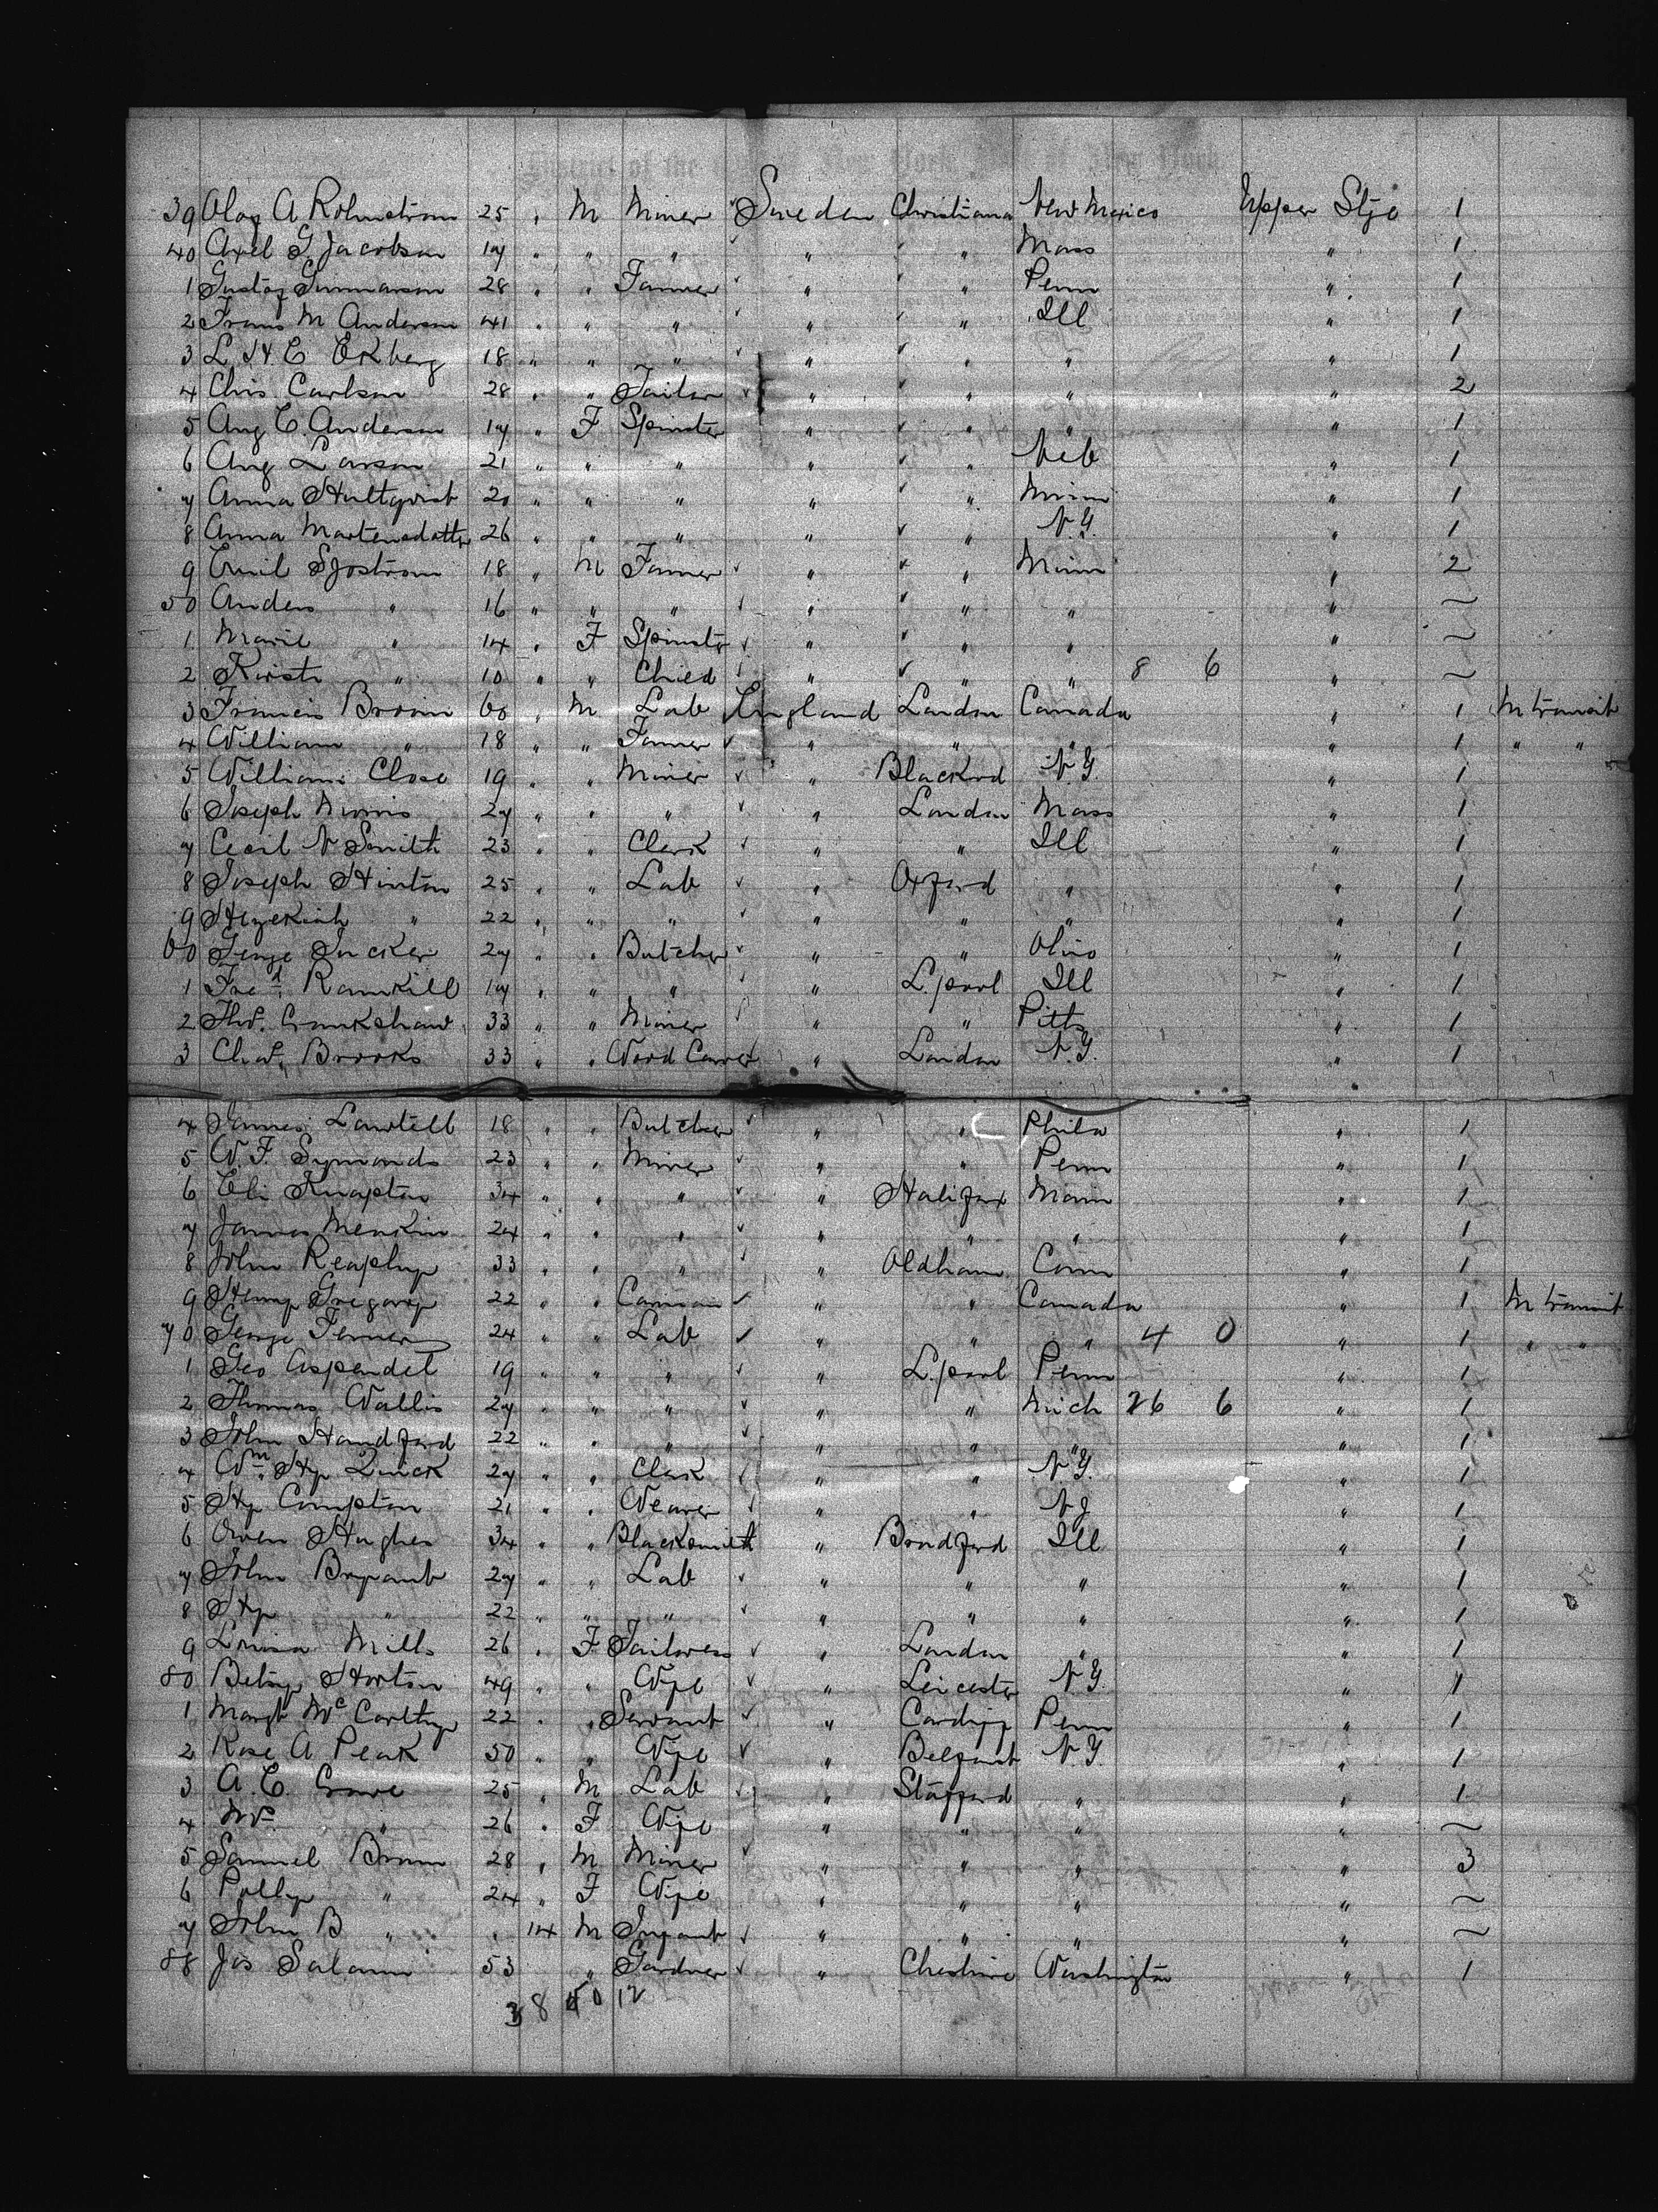 District of the New York, Port of New York
39 Olof A Rolmstrom 25 " M Miner Sweden Christiana New Mexico Upper Stge 1
40 Axel G Jacobson 19 " " " " " Mass " 1
1 Gustaf Gunnarson 28 " " Farmer " " Penn " 1
2 Frans M Anderson 41 " " " " " Ill " 1
3 L. H. E Ekberg 18 " " " " " " " 1
4 Chris Carlson 28 " " Tailor " " " " 2
5 Aug C. Anderson 19 " F Spinster " " " " 1
6 Aug Larson 21 " " " " " Neb " 1
7 Anna Hultqvist 20 " " " " " Minn " 1
8 Anna Martensdotter 26 " " " " " N.Y. " 1
9 Emil Sjostrom 18 " M Farmer " " Minn " 2
50 Anders " 16 " " " " " " " ~
1 Marie " 14 " F Spinster " " " " ~
2 Kirsti " 10 " " Child " " " 8 6 " ~
3 Francis Broom 60 " M Lab England London Canada " 1 In transit
4 William " 18 " " Farmer " " " " 1 " "
5 William Close 19 " " Miner " Blackrod N.Y. " 1
6 Joseph Norris 27 " " " " London Mass " 1
7 Cecil N Smith 23 " " Clerk " " Ill " 1
8 Joseph Hinton 25 " " Lab " Oxford " " 1
9 Hezekiah " 22 " " " " " " " 1
60 George Tucker 27 " " Butcher " " Ohio " 1
1 Fred Ramkill 19 " " " " L.pool Ill " 1
2 Tho.s Cronkshaw 33 " " Miner " " Pitts " 1
3 Cha.s Brooks 33 " " Wood Carver " London N.Y. " 1
4 James Lawtell 18 " " Butcher " " Phila " 1
5 W. F. Symonds 23 " " Miner " " Penn " 1
6 Eli Knapton 34 " " " " Halifax Mann " 1
7 James Menkin 24 " " " " " " " 1
8 John Reaplup 33 " " " " Oldham Conn " 1
9 Henry Gregory 22 " " " " Canada " 1 In transit
70 George Ferner 24 " " Lab " " " 4 0 " 1 " "
1 Geo Aspendel 19 " " " " L.pool Penn " 1
2 Thomas Wallis 27 " " " " " Mich 26 6 " 1
3 John Handford 22 " " " " " " " 1
4 Wm. Hy Quick 27 " " Clerk " " N.Y. " 1
5 Hy Compton 21 " " Weaver " " N J " 1
6 Owen Hughes 34 " " Blacksmith " Bradford Ill " 1
7 John Bryant 27 " " Lab " " " " 1
8 Hy " 22 " " " " " " " 1
9 Louisa Mills 26 " F Tailoress " London " " 1
80 Betsy Horton 49 " " Wife " Leicester N.Y. " 1
1 Margt McCarthy 22 " " Servant " Cardiff Penn " 1
2 Rose A Peak 50 " " Wife " Belfast N.Y. " 1
3 A. E. Crowe 25 " M Lab " Stafford " " 1
4 Mrs " 26 " F Wife " " " " ~
5 Samuel Brown 28 " M Miner " " " " 3
6 Polly " 24 " F Wife " " " " ~
7 John B " " 14 M Infant " " " " ~
88 Jas Salamm 53 " Gardner " Cheshire Washington " 1
38 50 12